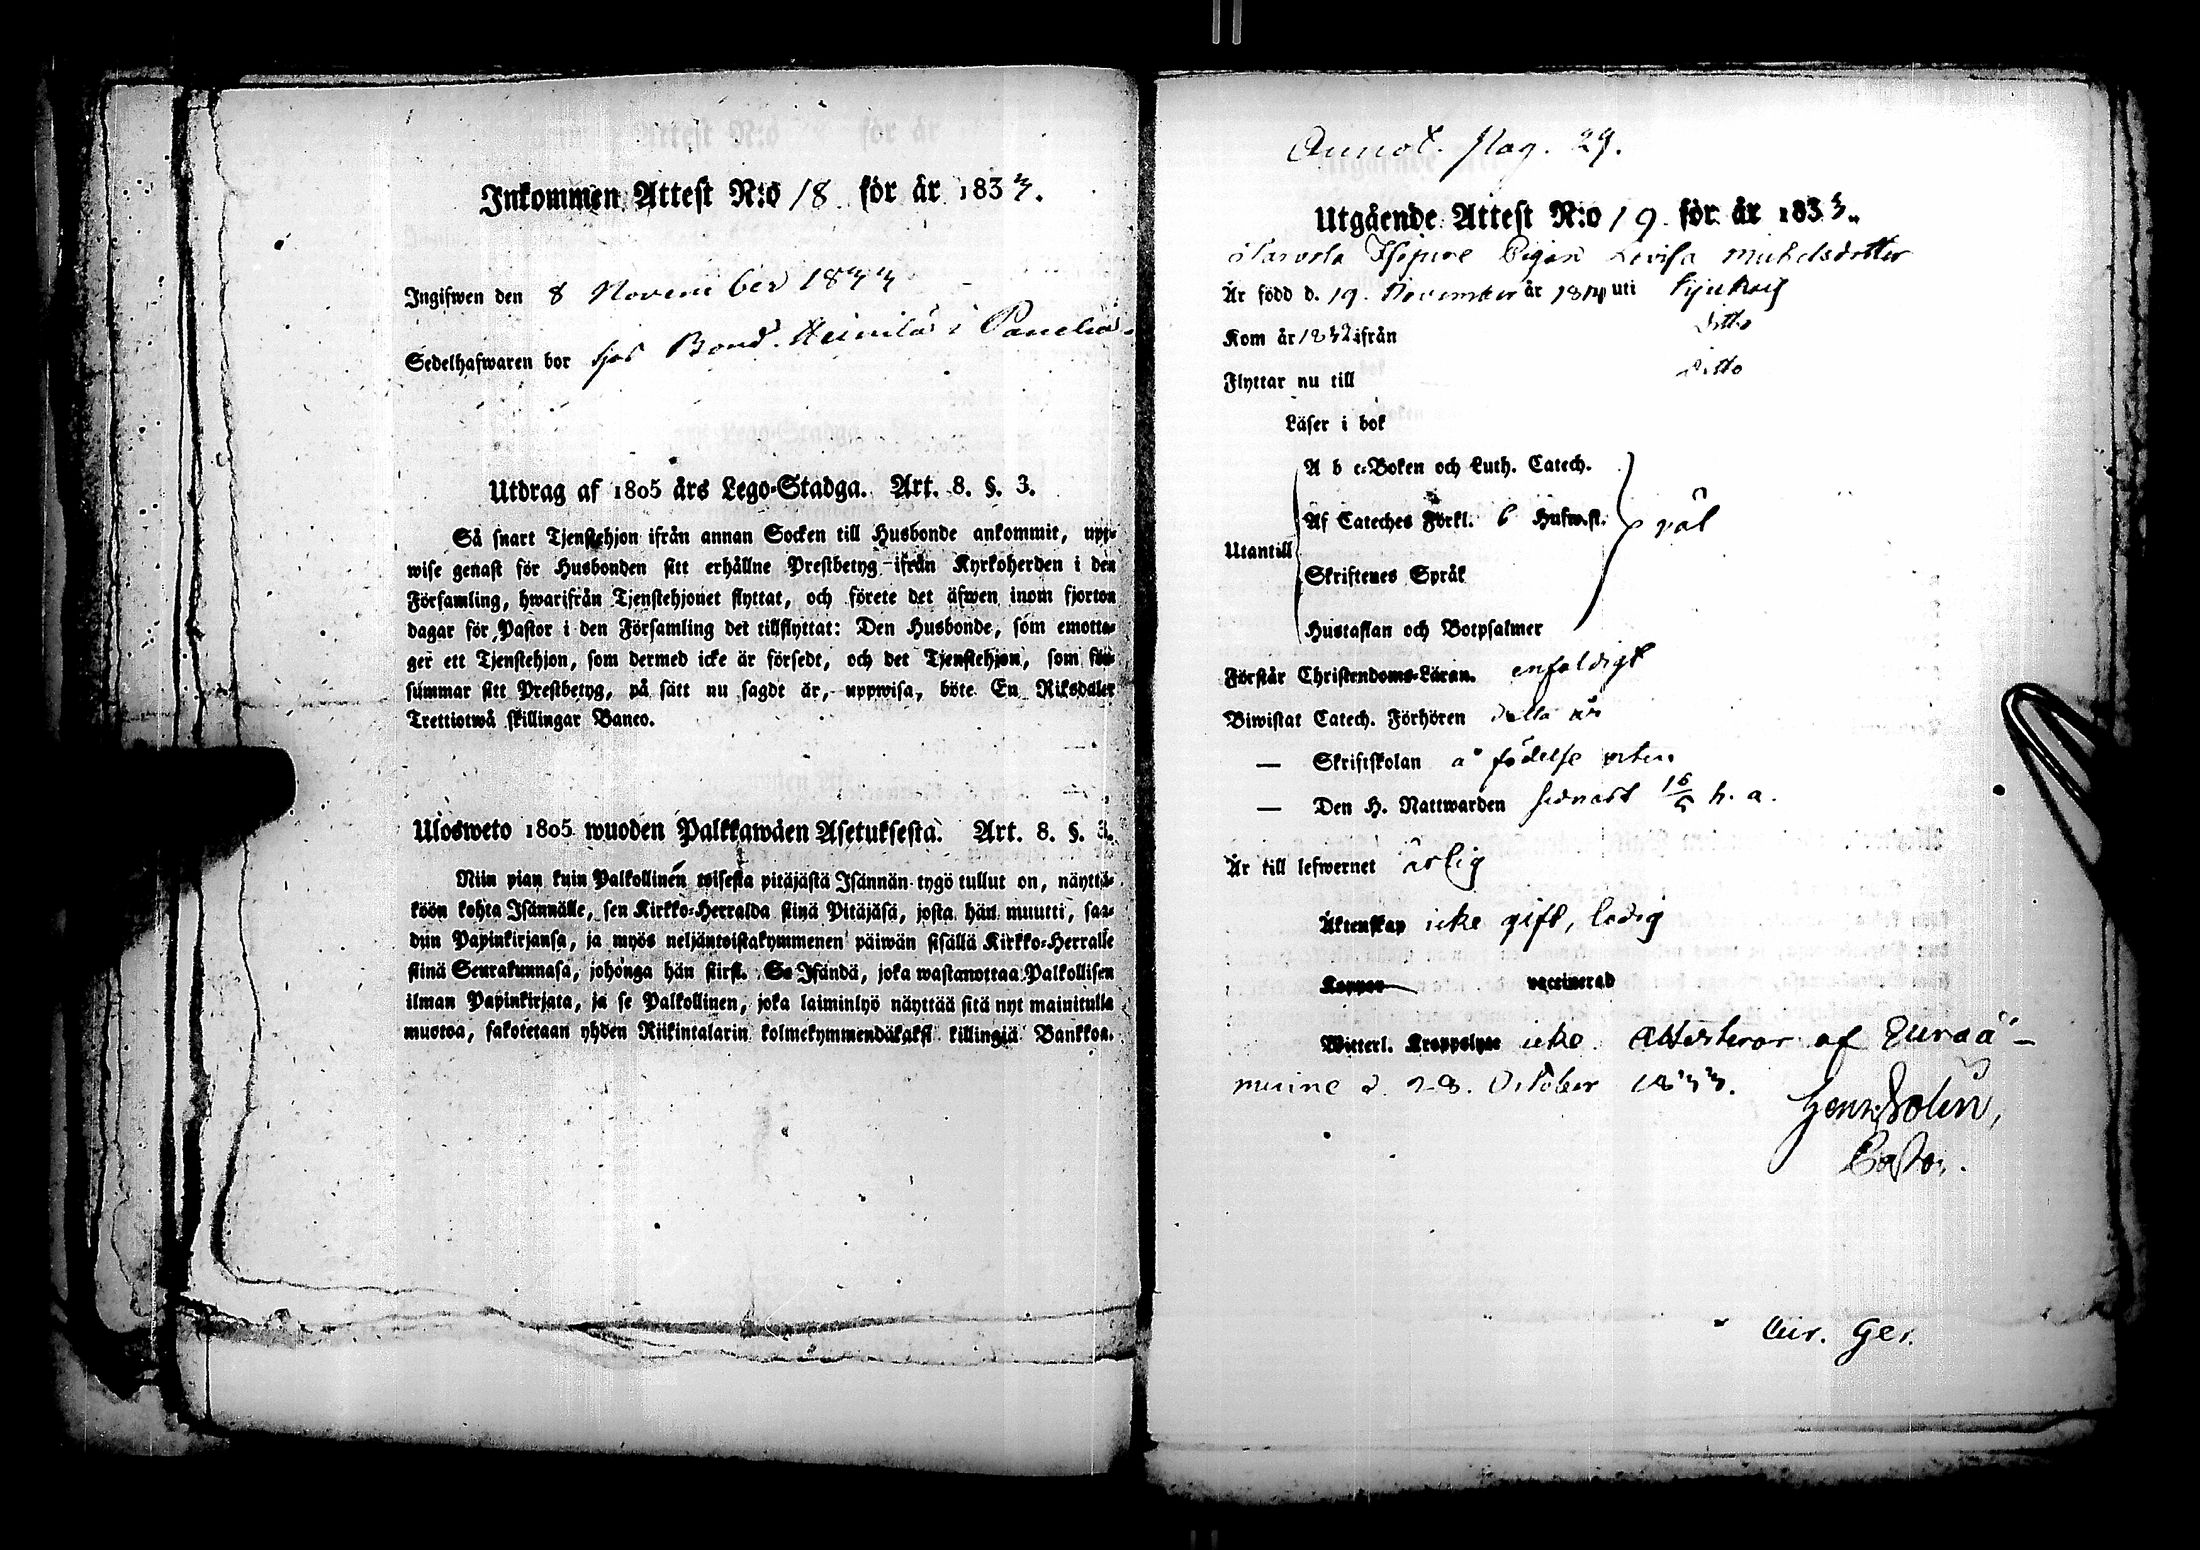 Inkommen Attest N:o 18 för år 1833.
Ingifwen den 8 November 1833
Sedelhafwaren bor hos Bond. Heinilä i Panelia
Utdrag af 1805 års Lego-Stadga. Art. 8. §. 3.
Så snart Tjenstehjon ifrån annan Socken till Husbonde ankommit, upp-
wise genast för Husbonden sitt erhållne Prestbetyg ifrån Kyrkoherden i den
Församling, hwarifrån Tjenstehjonet flyttat, och förete det äfwen inom fjorton
dagar för Pastor i den Församling det tillflyttat: Den Husbonde, som emotta-
ger ett Tjenstehjon, som dermed icke är försedt, och det Tjenstehjon, som för-
summar sitt Prestbetyg, på sätt nu sagdt är, uppwisa, böte En Riksdaler
Trettiotwå skillingar Banco.
Ulosweto 1805 wuoden Palkkawäen Asetuksesta. Art. 8. §. 3.
Niin pian kuin Palkollinen toisesta pitäjästä Isännän tygö tullut on, näyttä-
köön kohta Isännälle, sen Kirkko-Herralda siinä Pitäjäsä, josta hän muutti, saa-
dun Papinkirjansa, ja myös neljäntoistakymmenen päiwän sisällä Kirkko-Herralle
siinä Seurakunnasa, johonga hän siirst. Se Isändä, joka wastanottaa Palkollisen
ilman Papinkirjata, ja se Palkollinen, joka laiminlyö näyttää sitä nyt mainitulla
muotoa, sakotetaan yhden Riikintalarin kolmekymmendäkaksi killingiä Bankkoa.
Annot. Pag. 29.
Utgående Attest N:o 19 för år 1833.
Pigan Lovisa Michelsdotter
Är född d. 19. November år 1814 uti Kjukais
Kom år 1832 ifrån Ditto
Flyttar nu till Ditto
Läser i bok
A b c-Boken och Luth. Catech.
Af Cateches Förkl. 6 Hufwst. väl
Utantill
Skriftenes Språk
Hustaflan och Botpsalmer
Förstår Christendoms-Läran. enfaldigt
Biwistat Catech. Förhören detta år
— Skriftskolan å födelse orten
— Den H. Nattwarden sednast 16/5 h. a.
Är till lefwernet ärlig
Äktenskap icke gift, ledig
Koppor vaccinerad
Witterl. Kroppslyte icke. Attesteras af Euraå-
minne d. 28. October 1833.
Henr. Bolin,
Pastor.
Cur. Ger.